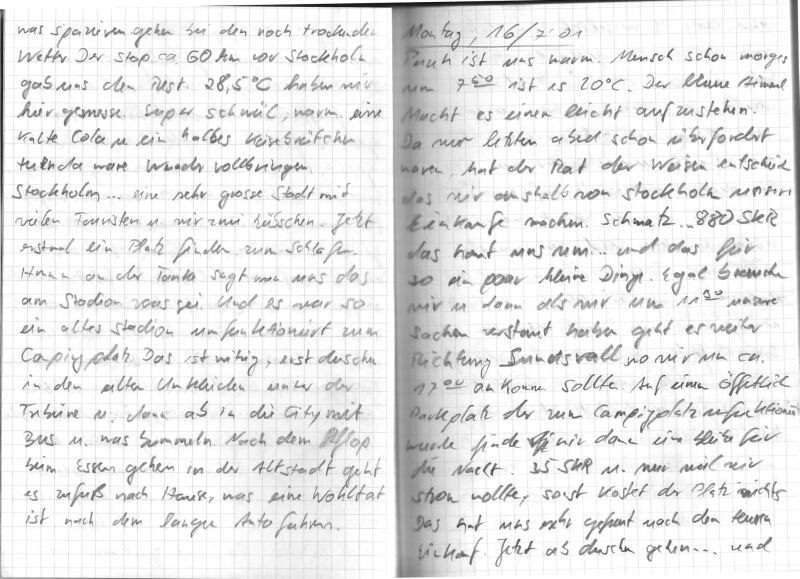 was spazieren gehen bei den noch trockenden
Wetter. Der Stop ca. 60 km vor Stockholm
gab uns den Rest. 28,5°C haben wir
hier gemesse. Super schwül, warm. eine
kalte Cola u ein halbes
wäre Wunder vollbringen.
Stockholm... eine sehr grosse Stadt mid
vielen Touristen u. wir zwei hübschen. Jetzt
erstmal ein Platz finden zum schlafen.
an der Tanke sagt man uns das
am Stadion was sei. Und es war so
ein altes Stadion umfunktioniert zum
Campingplatz. Das ist witzig, erst duschen
in den alten Umkleiden unter der
Tribüne u. dann ab in die City mit
Bus u. was bummeln. Nach dem
beim Essen gehen in der Altstadt geht
es zufuß nach Hause, was eine Wohltat
ist nach dem langen Auto fahren.
Montag, 16/7.01
Puch ist uns warm. Mensch schon morges
um 7 00 ist es 20°C. Der blaue Himmel
Macht es einen leicht aufzustehen.
Da wir letzten abed schon überfordert
waren, hat der Rat der Weisen entschied
das wir auserhalb von Stockholm unseren
Einkäufe machen. Schmatz... 880 SKR
das haut uns um... und das für
so ein paar kleine Dinge. Egal brauche
wir u dann als wir um 11 30 unsere
Sachen verstaut haben geht es weiter
Richtung Sundsvall wo wir um ca.
17 00 ankomme sollte. Auf einen öffetlich
Parkplatz der zum Campigplatz umfuktioniert
wurde finde wir dann eine bleibe für
die Nacht. 35 SKR u. nur weil wir
strom wollte, sost kostet der Platz nichts
Das hat uns sehr gefreut nach den teuren
Einkauf. Jetzt ab duschen gehen.... und